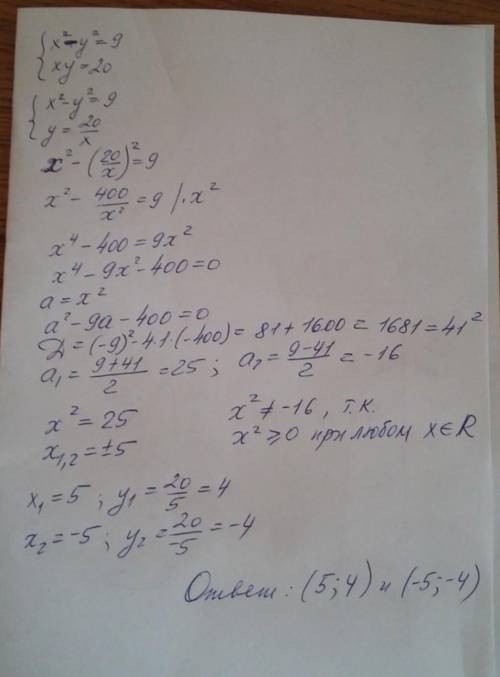 { x² - y² = 9
xy = 20
{ x² - y² = 9
y = 20/x
x² - (20/x)² = 9
x² - 400/x² = 9 | · x²
x⁴ - 400 = 9x²
x⁴ - 9x² - 400 = 0
a = x²
a² - 9a - 400 = 0
D = (-9)² - 4·1·(-400) = 81 + 1600 = 1681 = 41²
a₁ = (9+41)/2 = 25 ; a₂ = (9-41)/2 = -16
x² = 25 x² ≠ -16 , т.к.
x₁,₂ = ±5 x² ⩾ 0 при любом x ∈ R
x₁ = 5 ; y₁ = 20/5 = 4
x₂ = -5 ; y₂ = 20/-5 = -4
Ответ: (5; 4) и (-5; -4)